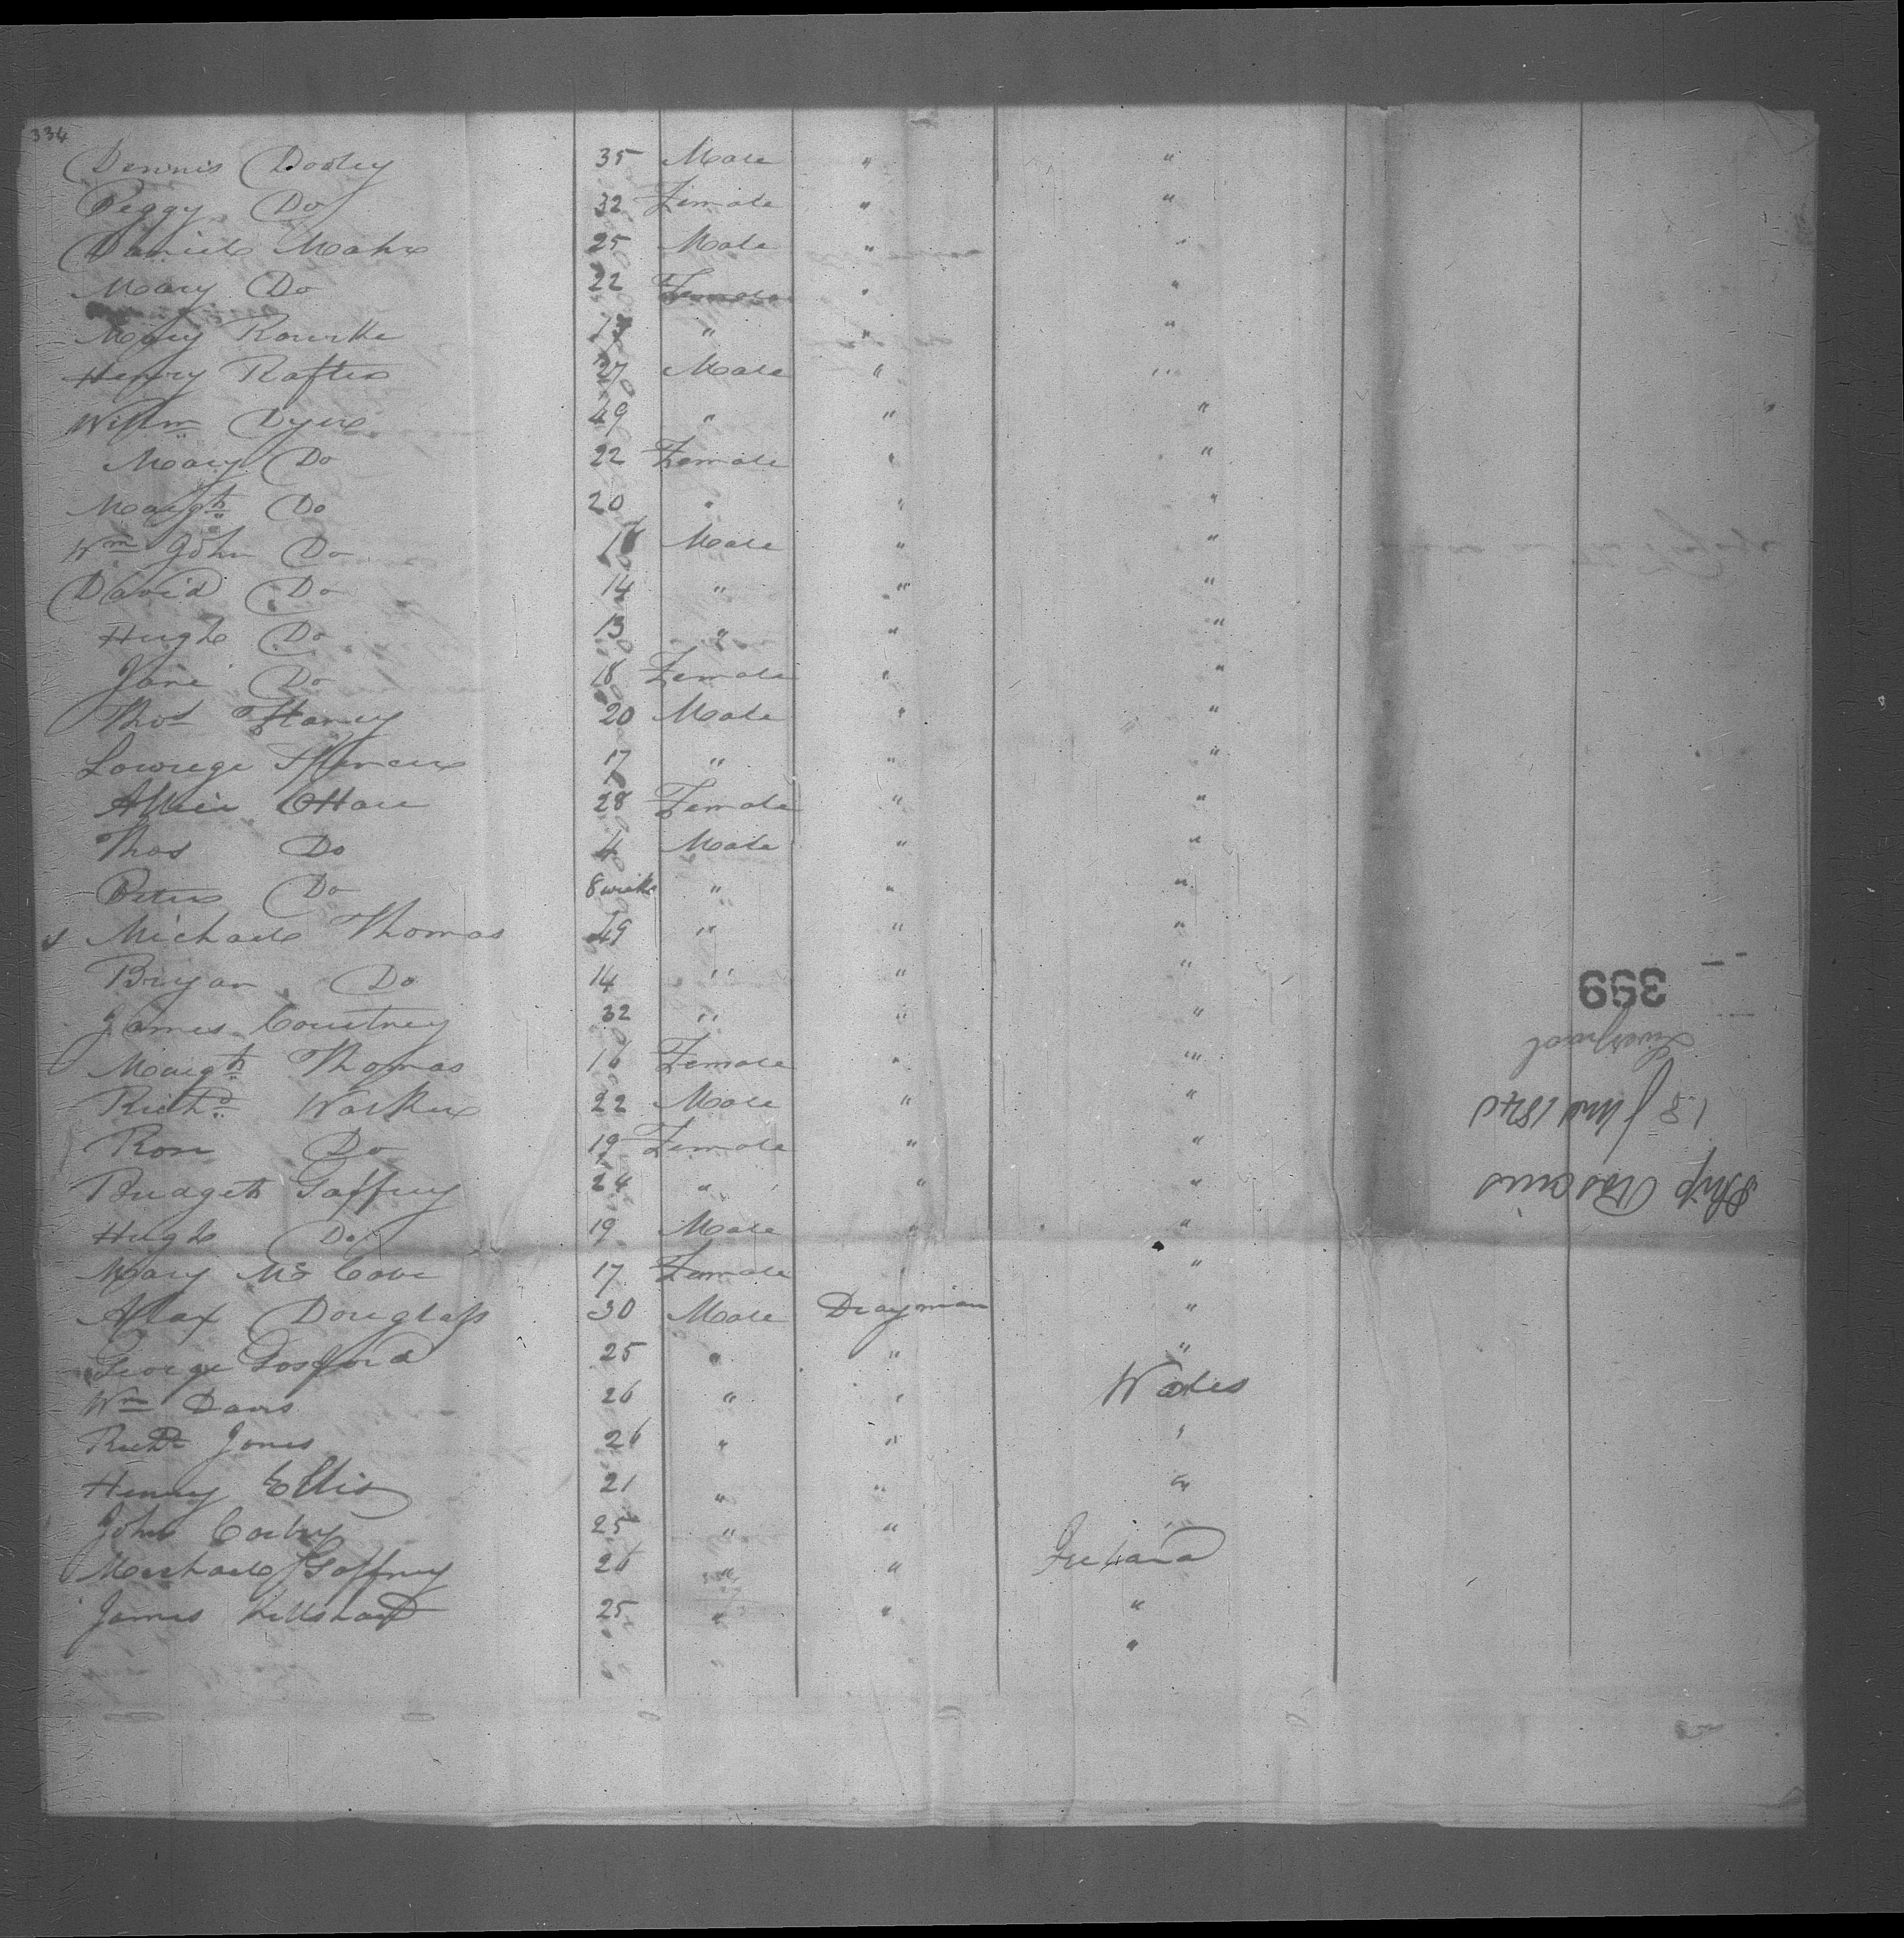 334
Dennis Dooley 35 Male " "
Peggy Do 32 Female " "
Daniel Mahr 25 Male " "
Mary Do 22 Female " "
Mary Rourke " " "
Henry Rafter 27 Male " "
Willm Dyer 49 " " "
Mary Do 22 Female " "
Margt Do 20 " " "
Wm John Do Male " "
David Do 14 " " "
Hugh Do 13 " " "
Jane Do 18 Female " "
Thos Haney 20 Male " "
17 " " "
OHare 28 Female " "
Thos Do 4 Male " "
Peter Do 8 weeks " " "
Michael Thomas 49 " " "
Bryan Do 14 " " "
James Courtney 32 " " "
Margt Thomas 16 Female " "
Richd Walker 22 Male " "
Rose Do 19 Female " "
Bridget Gaffney 24 " " "
Hugh Do 19 Male " "
Mary McCabe 17 Female " "
Alax Douglass 30 Male Drayman "
George Gosford 25 " " "
Wm Davis 26 " " Wales
Richd Jones 26 " " "
Henry Ellis 21 " " "
John Corby 25 " " "
Michael Gaffney 26 " " Ireland
James 25 " " "
"
Ship Roscius
18 June 1840
Liverpool
399